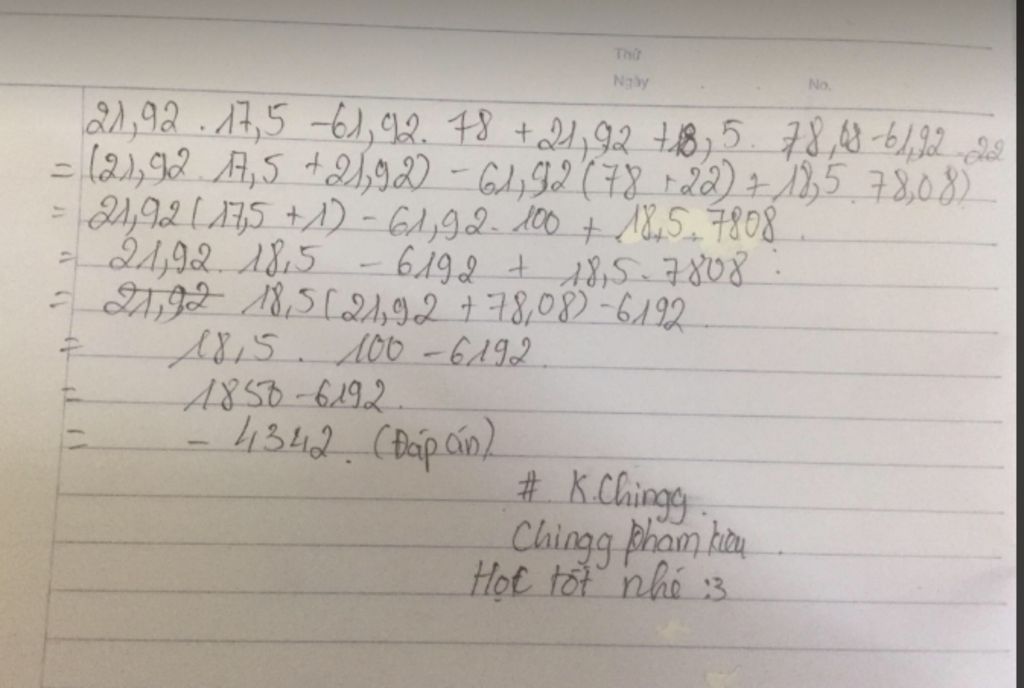 Thứ
Ngày No.
21,92 . 17,5 - 61,92 . 78 + 21,92 + 18,5 . 78,08 - 61,92 . 22
= (21,92 . 17,5 + 21,92) - 61,92 (78 + 22) + 18,5 . 78,08)
= 21,92 (17,5 + 1) - 61,92 . 100 + 18,5 . 7808
= 21,92 . 18,5 - 6192 + 18,5 . 7808 .
= 21,92 18,5 (21,92 + 78,08) - 6192
= 18,5 . 100 - 6192
= 1850 - 6192.
= - 4342. (Đáp án)
# K.Chingg.
Chingg phạm kiều
Học tốt nhé :3